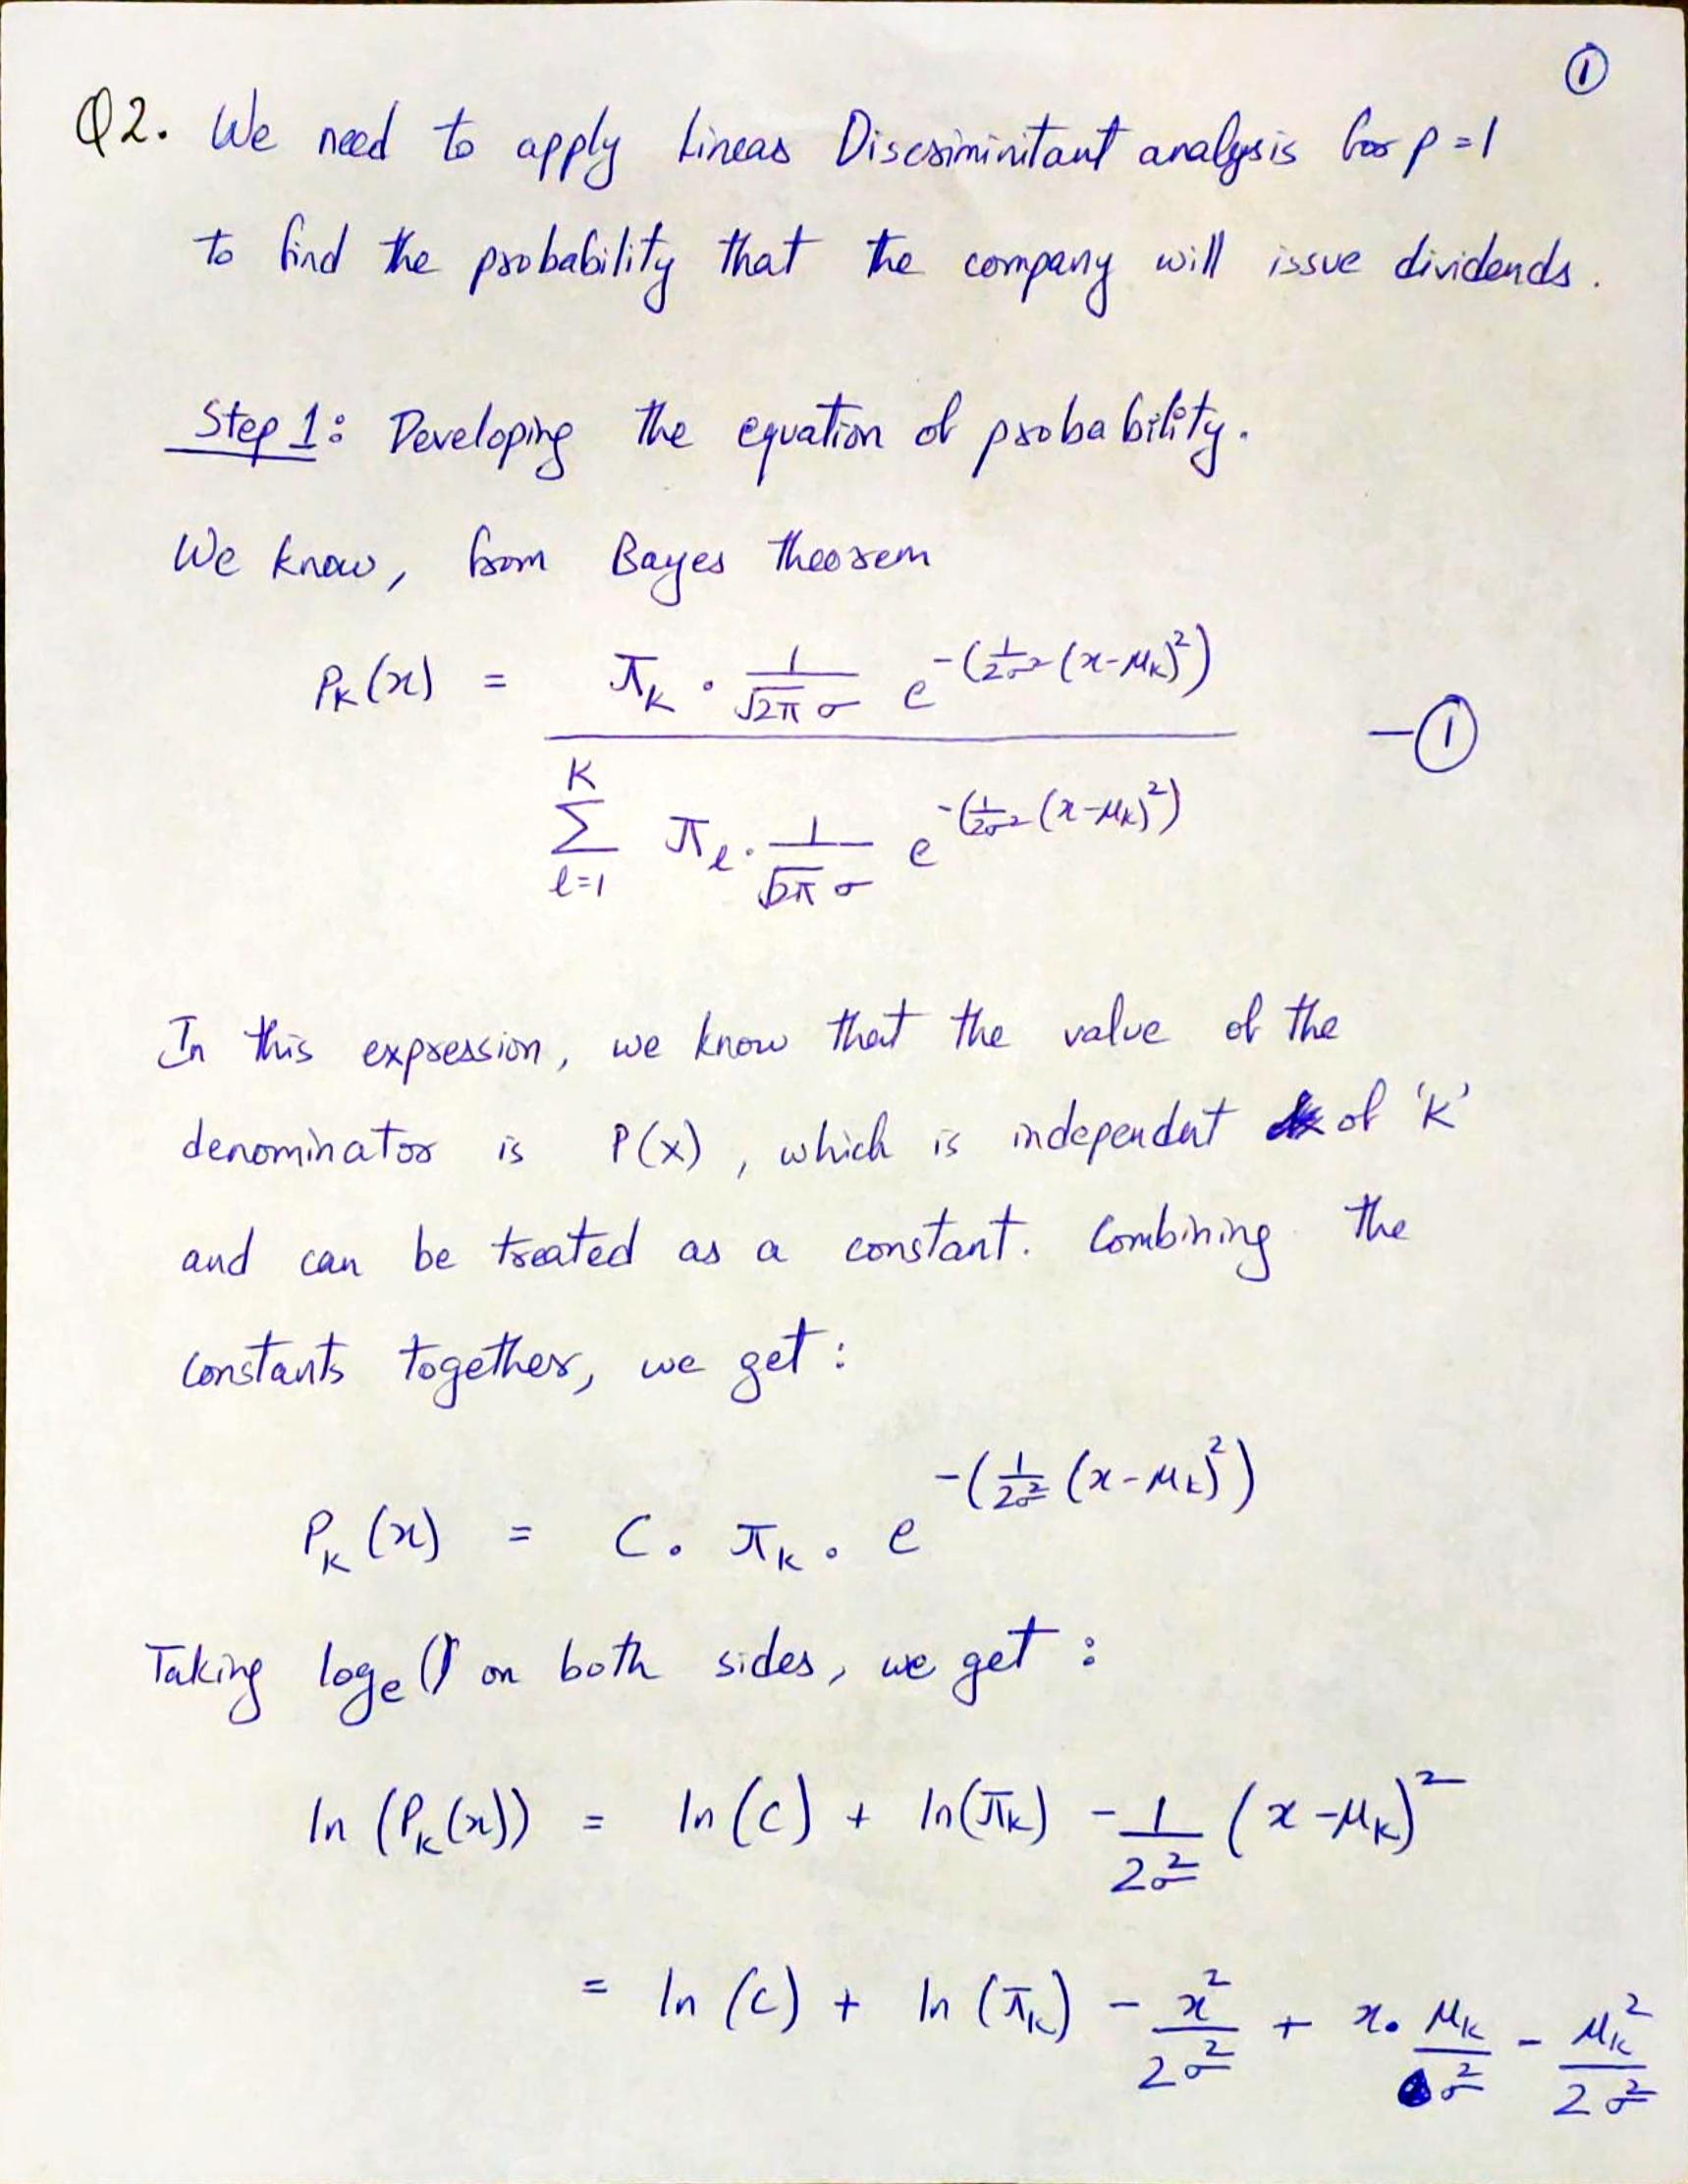 ①
Q2. We need to apply Linear Discriminitant analysis for p = 1
to find the probability that the company will issue dividends.
Step 1: Developing the equation of probability.
We know, from Bayes theorem
Pₖ(x) = πₖ · 1/(√2π σ) e^-(1/2σ² (x-μₖ)²) / Σ_{l=1}^{K} πₗ · 1/(√2π σ) e^-(1/2σ² (x-μₖ)²) — ①
In this expression, we know that the value of the
denominator is P(x), which is independent of 'K'
and can be treated as a constant. Combining the
constants together, we get:
Pₖ(x) = C · πₖ · e^-(1/2σ² (x-μₖ)²)
Taking logₑ() on both sides, we get:
ln (Pₖ(x)) = ln(c) + ln(πₖ) - 1/2σ² (x-μₖ)²
= ln (c) + ln (πₖ) - x²/2σ² + x · μₖ/σ² - μₖ²/2σ²